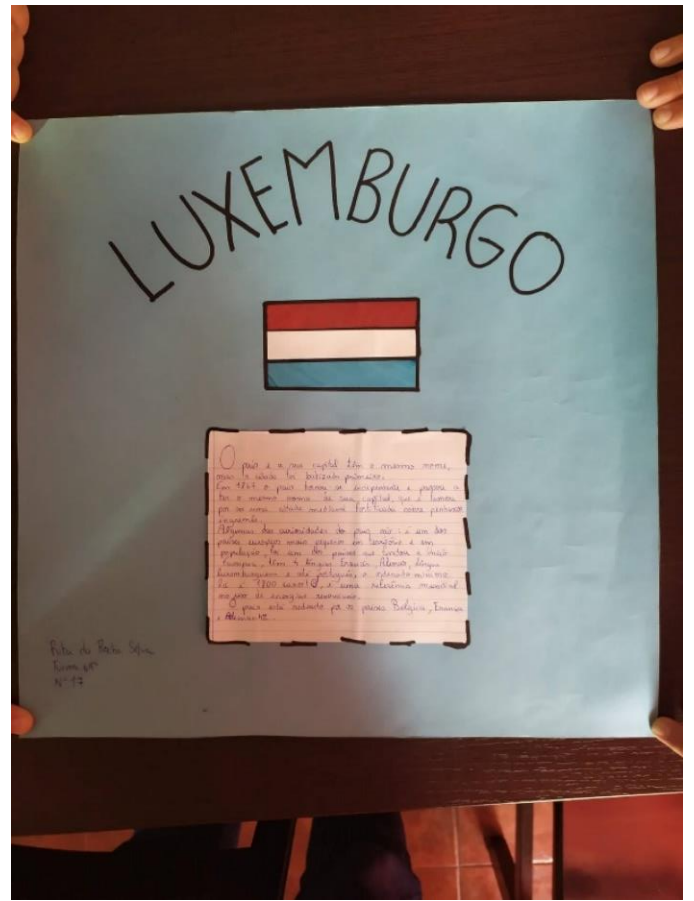 LUXEMBURGO
O país e a sua capital têm o mesmo nome,
mas a cidade foi batizada primeiro.
Em 1867 o país torna se independente e passou a
ter o mesmo nome da sua capital, que é famosa
por ser uma cidade medieval fortificada sobre penhascos
íngremes.
Algumas das curiosidades do país são: é um dos
países europeus mais pequenos em território e em
população, foi um dos países que fundou a União
Europeia, têm 4 línguas Francês, Alemão, língua
luxemburguesa e até português, o ordenado mínimo
lá é 1800 euros, é uma referência mundial
no uso de energias renováveis.
O país está rodeado por os países Bélgica, França
e Alemanha.
da Rocha Silva
Turma
Nº 17